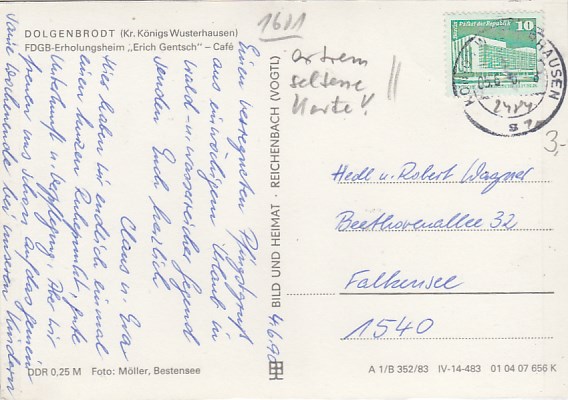 DOLGENBRODT (Kr. Königs Wusterhausen)
FDGB-Erholungsheim „Erich Gentsch" – Café
1611
extrem
seltene
Karte!
10
Palast der Republik
DDR
HAUSEN
3,-
Einen verregneten Pfingstgruß
aus einwöchigem Urlaub in
wald- u. wasserreicher Gegend
senden Euch herzlich
Claus u. Eva
Hier haben wir endlich einmal
einen kurzen Ruhepunkt, gute
Unterkunft u. Verpflegung. Aber wir
freuen uns schon auf das gemein-
same Wochenende bei unseren Kindern
4.6.90
BILD UND HEIMAT · REICHENBACH (VOGTL)
Hedl u. Robert Wagner
Beethovenallee 32
Falkensee
1540
DDR 0,25 M Foto: Möller, Bestensee
A 1/B 352/83 IV-14-483 01 04 07 656 K